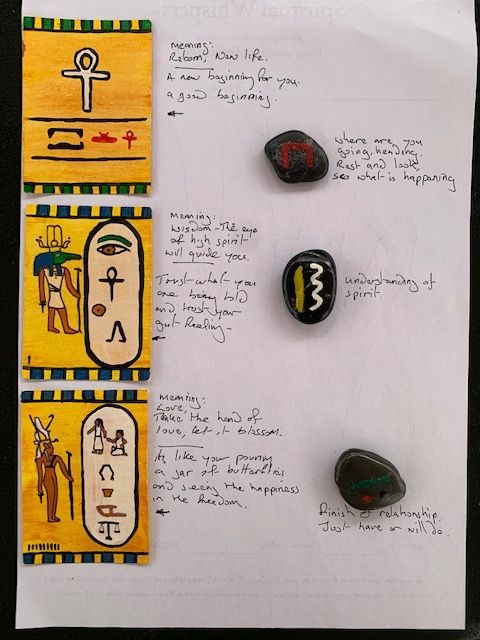 Spiritual Whispers
meaning:
Reborn, New life.
A new beginning for you.
a good beginning.
where are you
going, heading.
Rest and look,
see what is happening
meaning:
wisdom - The eye
of high spirit
will guide you.
Trust what you
are being told
and trust your
gut feeling -
understanding of
spirit.
meaning:
Love,
Take the hand of
love, let it blossom.
its like your pouring
a jar of butterflies
and seeing the happiness
in the freedom.
Finish of relationship.
Just have or will do.